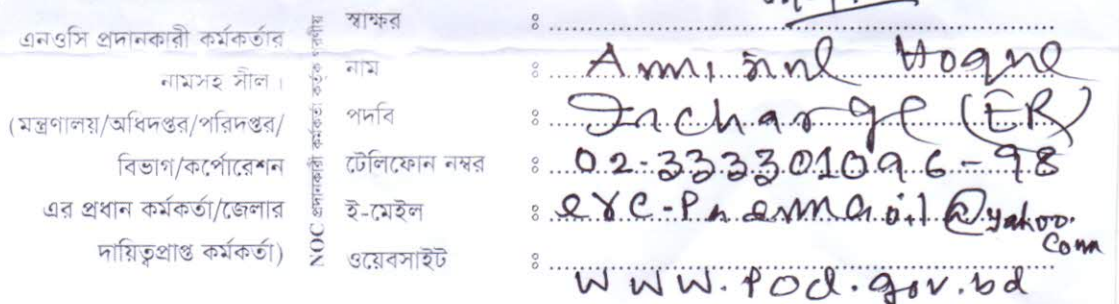 এনওসি প্রদানকারী কর্মকর্তার
নামসহ সীল।
(মন্ত্রণালয়/অধিদপ্তর/পরিদপ্তর/
বিভাগ/কর্পোরেশন
এর প্রধান কর্মকর্তা/জেলার
দায়িত্বপ্রাপ্ত কর্মকর্তা)
NOC প্রদানকারী কর্মকর্তা কর্তৃক পূরণীয়
স্বাক্ষর :
নাম : Hoque
পদবি : Incharge (ER)
টেলিফোন নম্বর : 02-333301096-98
ই-মেইল : @yahoo.com
ওয়েবসাইট : www.pod.gov.bd